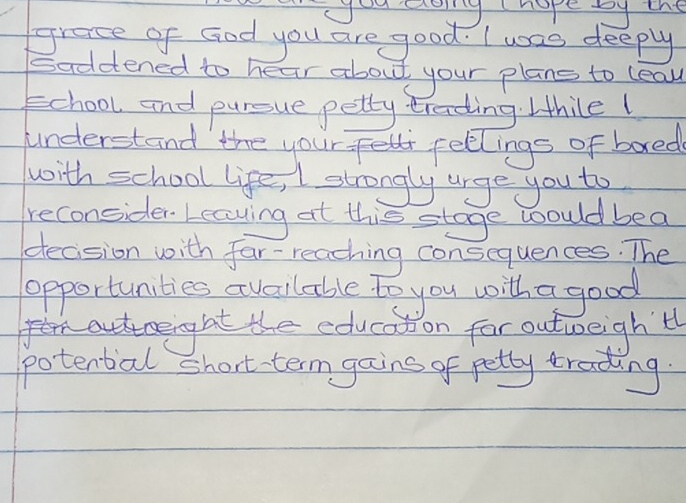 you doing I hope by the
grace of God you are good. I was deeply
saddened to hear about your plans to leav
school and pursue petty trading. While I
understand the your fetti feelings of bored
with school life, I strongly urge you to
reconsider. Leaving at this stage would be a
decision with far-reaching consequences. The
opportunities available to you with a good
outweight the education far outweigh th
potential short-term gains of petty trading.